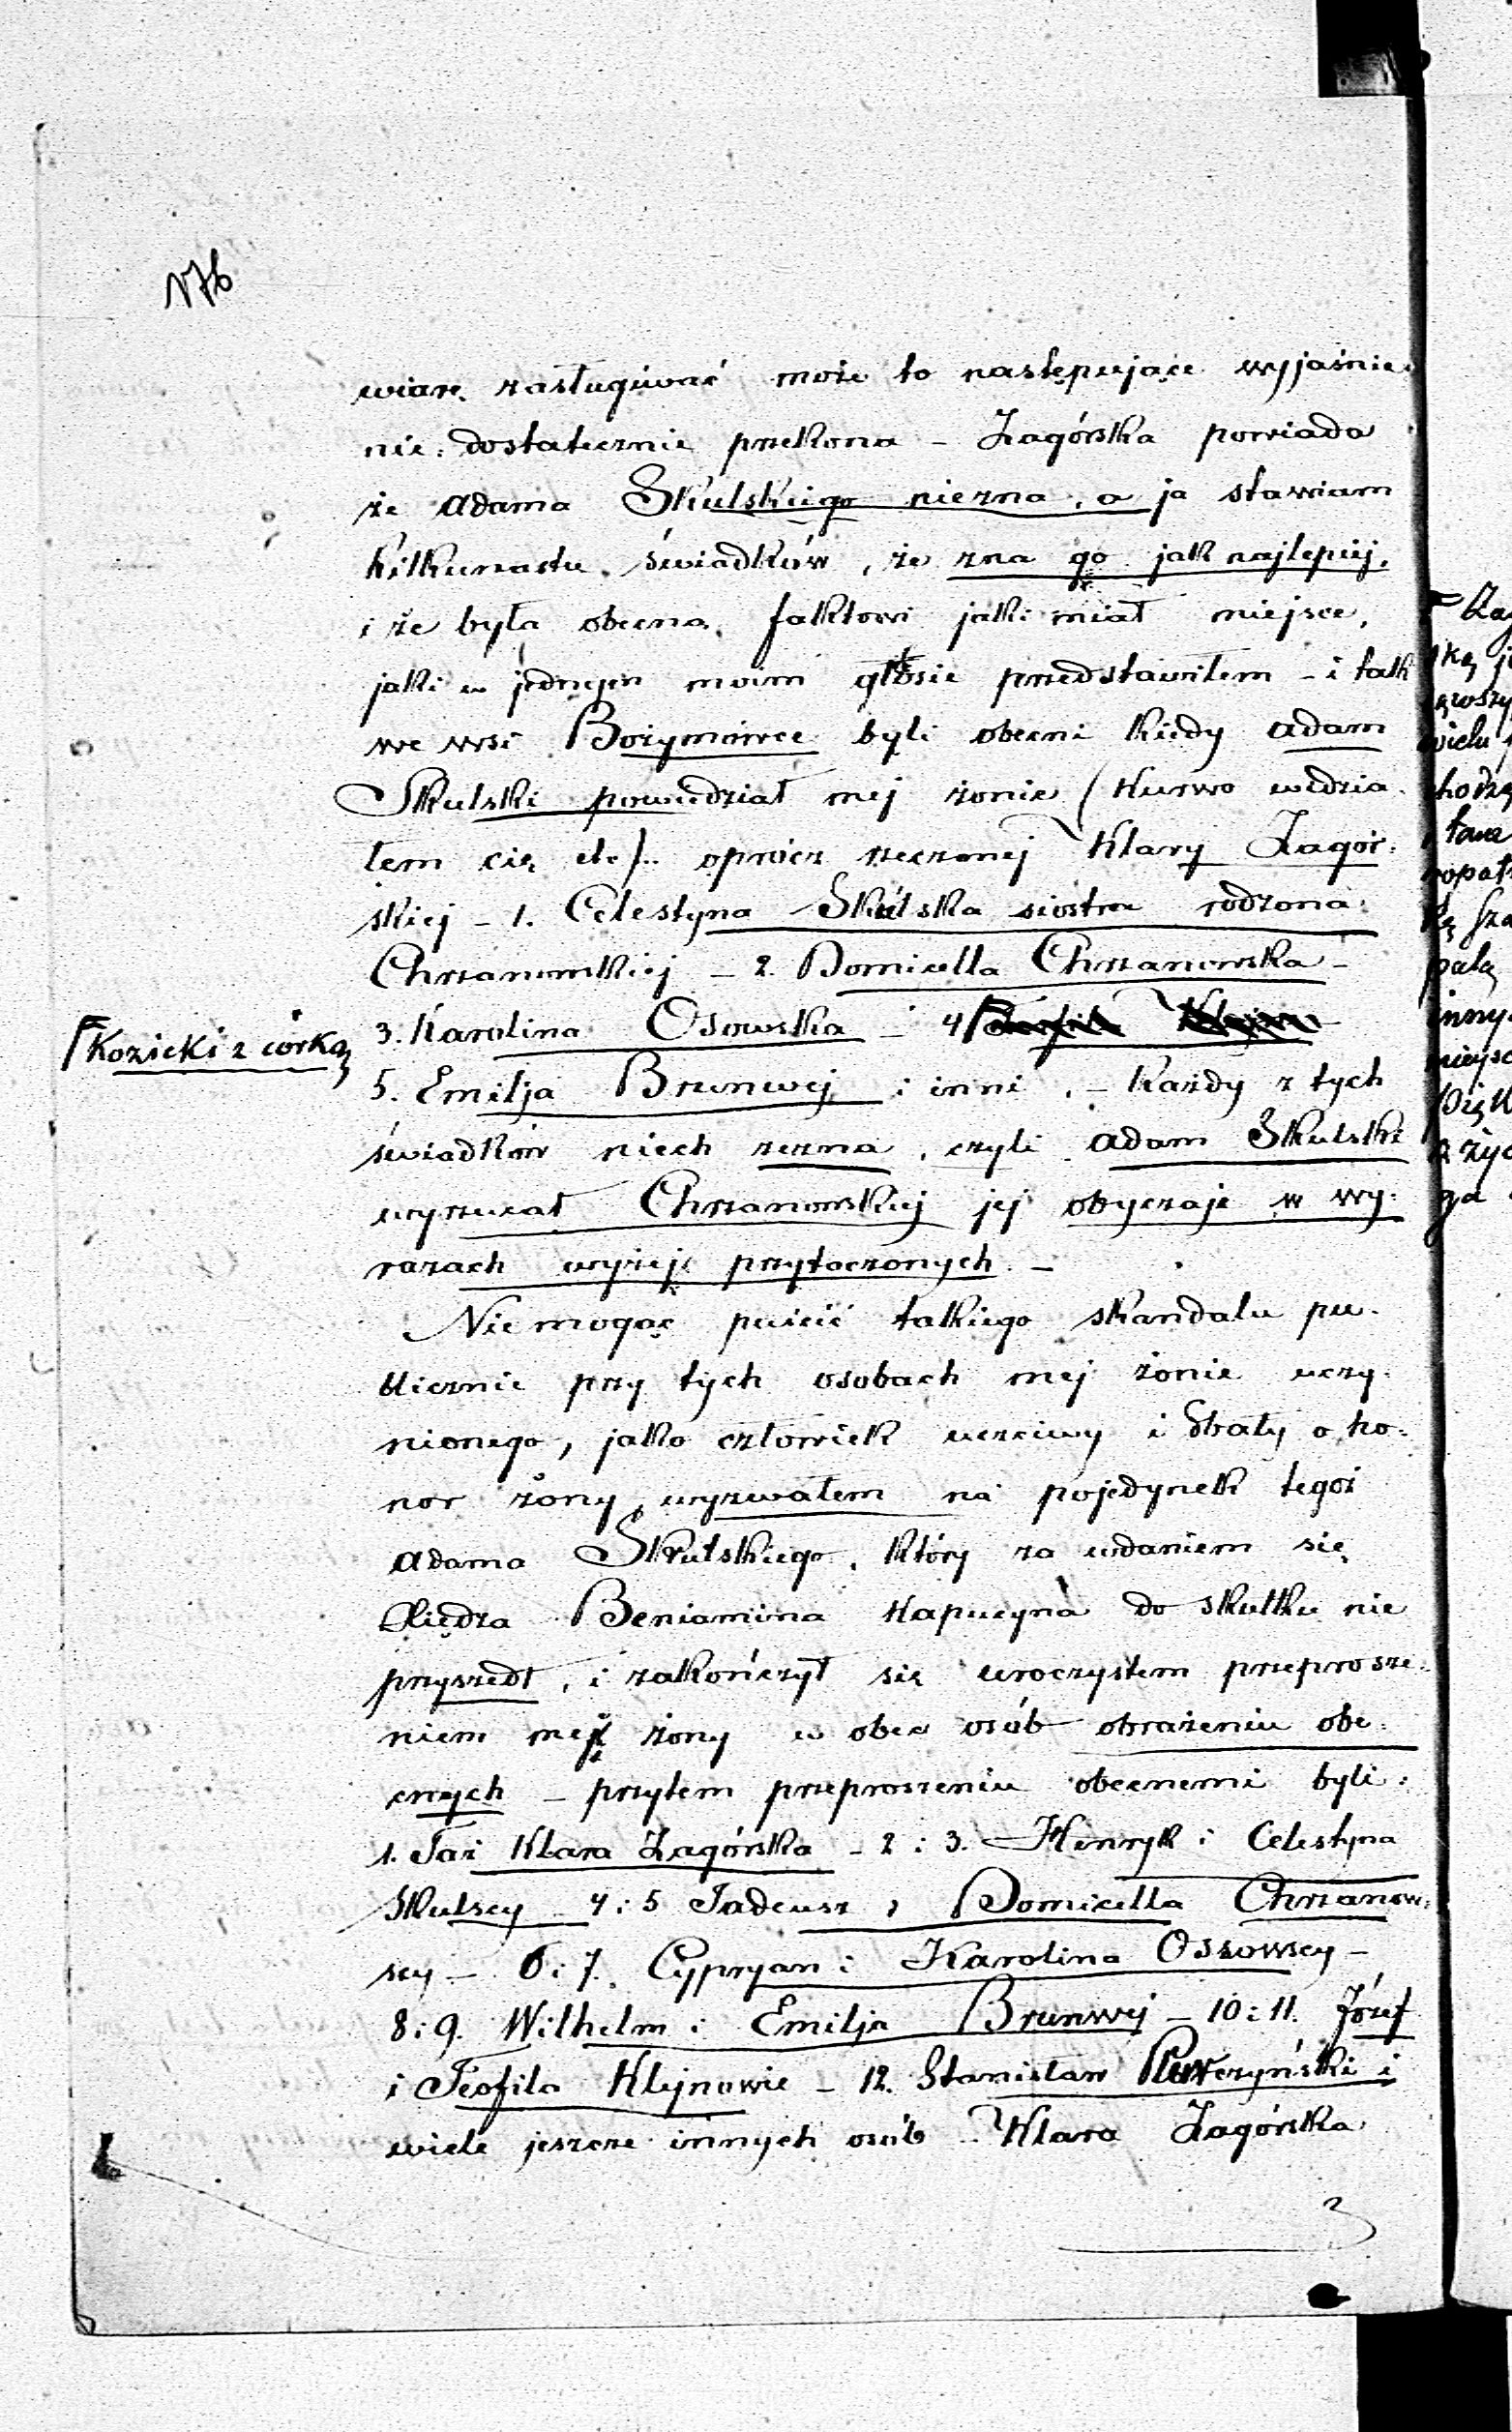 176
wiarę zasługiwać może to następujące wyjaśnie-
nie: dostatecznie przekona - Zagórska powiada
że Adama Skulskiego niezna, a ja stawiam
kilkunastu świadków, że zna go jak najlepiej,
i że była obecną faktowi jaki miał miejsce,
jaki w jednym moim głosie przedstawiłem - i tak
we wsi Bożymówce byli obecni kiedy Adam
Skulski powiedział mej żonie (kurwo widzia-
łem cię etc).. oprócz rzeczonej Klary Zagór-
skiej - 1. Celestyna Skulska siostra rodzona
Chrzanowskiej - 2. Domicella Chrzanowska -
3. Karolina Osowska - 4
Kozicki z córką
5. Emilja Brunwej i inni. - Każdy z tych
świadków niech zezna, czyli Adam Skulski
wyrzucał Chrzanowskiej jej obyczaje w wy-
razach wyżej przytoczonych -
Nie mogąc puścić takiego skandalu pu-
blicznie przy tych osobach mej żonie uczy-
nionego, jako człowiek uczciwy i dbały o ho-
nor żony, wyzwałem na pojedynek tegoż
Adama Skulskiego, który za wdaniem się
Xiędza Beniamina Kapucyna do skutku nie
przyszedł, i zakończył się uroczystem przeprosze-
niem mej żony w obec osób obrażeniu obe-
cnych - przytem przeproszeniu obecnemi byli:
1. Taż Klara Zagórska - 2 i 3. Henryk i Celestyna
Skulscy - 4 i 5 Tadeusz i Domicella Chrzanow-
scy - 6 i 7. Cypryan i Karolina Ossowscy -
8 i 9. Wilhelm i Emilja Brunwej - 10 i 11. Józef
i Teofila Klejnowie - 12. Stanisław i
wiele jeszcze innych osób - Klara Zagórska